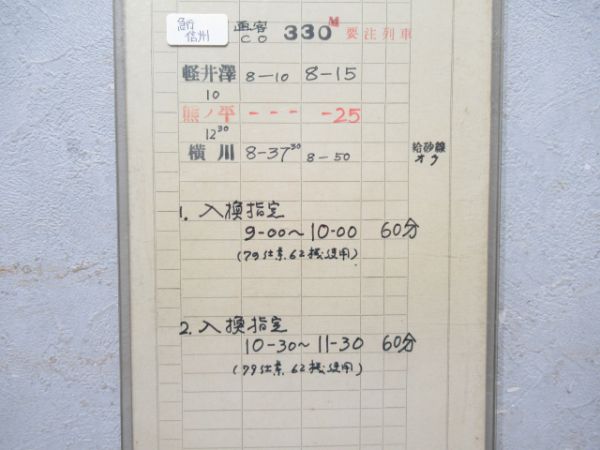 急行
信州
直客
CO
330M 要注列車
軽井澤 8-10 8-15
10
熊ノ平 - - - -25
12 30
横川 8-37 30 8-50
給砂線
オク
1. 入換指定
9-00~10-00 60分
(79仕業.62機使用)
2. 入換指定
10-30~11-30 60分
(79仕業.62機使用)